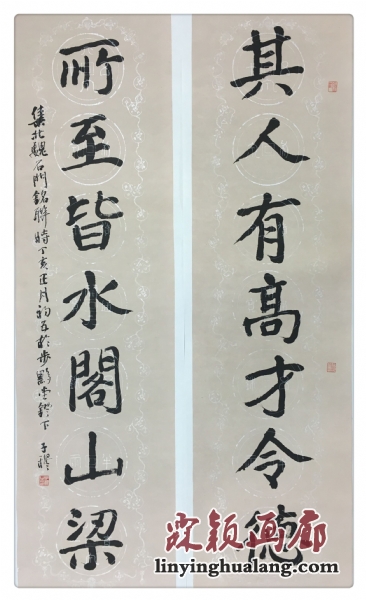 其人有高才令德
所至皆水閣山梁
集北魏石門銘聯時丁亥正月初五於步黟堂鐙下 子
霖颖画廊
linyinghualang.com